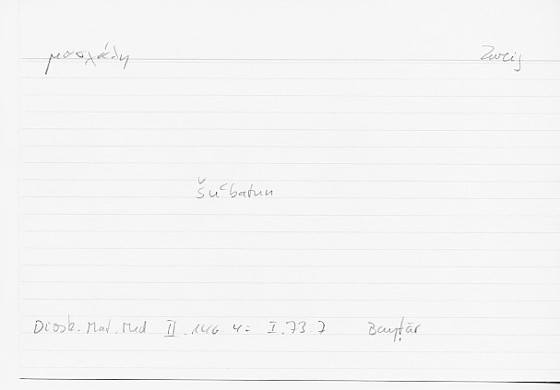 μασχάλη Zweig
šuʿbatun
Diosk. Mat. Med II. 146 4 = I. 73. 7 Bayṭār